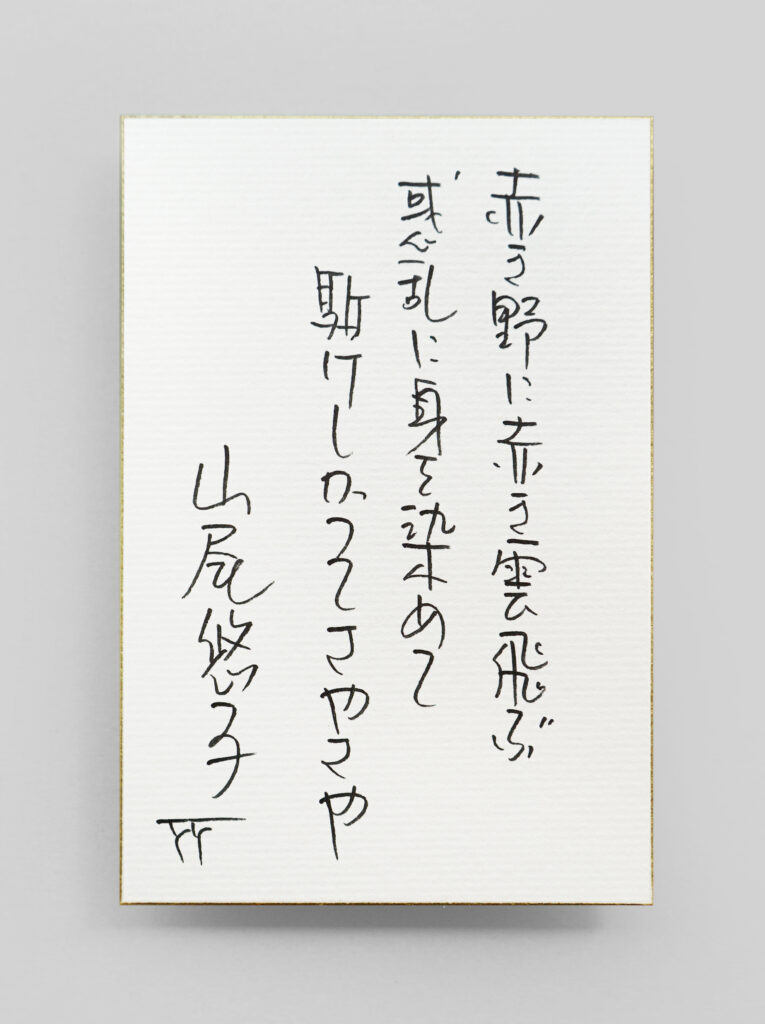 赤き野に赤き雲飛ぶ
惑乱に身を染めて
駈けしかつてさやさや
山尾悠子
YY